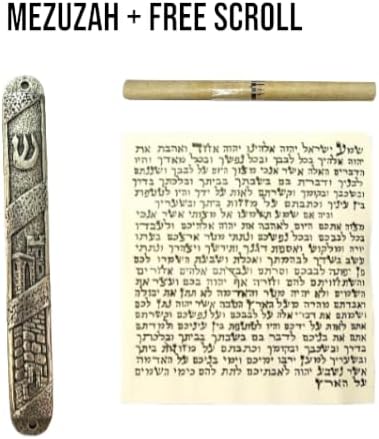 MEZUZAH + FREE SCROLL
ש
שמע ישראל יהוה אלהינו יהוה אחד ואהבת את
יהוה אלהיך בכל לבבך ובכל נפשך ובכל מאדך והיו
הדברים האלה אשר אנכי מצוך היום על לבבך ושננתם
לבניך ודברת בם בשבתך בביתך ובלכתך בדרך
ובשכבך ובקומך וקשרתם לאות על ידך והיו לטטפת
בין עיניך וכתבתם על מזזות ביתך ובשעריך
והיה אם שמע תשמעו אל מצותי אשר אנכי
מצוה אתכם היום לאהבה את יהוה אלהיכם ולעבדו
בכל לבבכם ובכל נפשכם ונתתי מטר ארצכם בעתו
יורה ומלקוש ואספת דגנך ותירשך ויצהרך ונתתי
עשב בשדך לבהמתך ואכלת ושבעת השמרו לכם
פן יפתה לבבכם וסרתם ועבדתם אלהים אחרים
והשתחויתם להם וחרה אף יהוה בכם ועצר את
השמים ולא יהיה מטר והאדמה לא תתן את יבולה
ואבדתם מהרה מעל הארץ הטבה אשר יהוה נתן לכם
ושמתם את דברי אלה על לבבכם ועל נפשכם וקשרתם
אתם לאות על ידכם והיו לטוטפת בין עיניכם ולמדתם
אתם את בניכם לדבר בם בשבתך בביתך ובלכתך
בדרך ובשכבך ובקומך וכתבתם על מזוזות ביתך
ובשעריך למען ירבו ימיכם וימי בניכם על האדמה
אשר נשבע יהוה לאבתיכם לתת להם כימי השמים
על הארץ